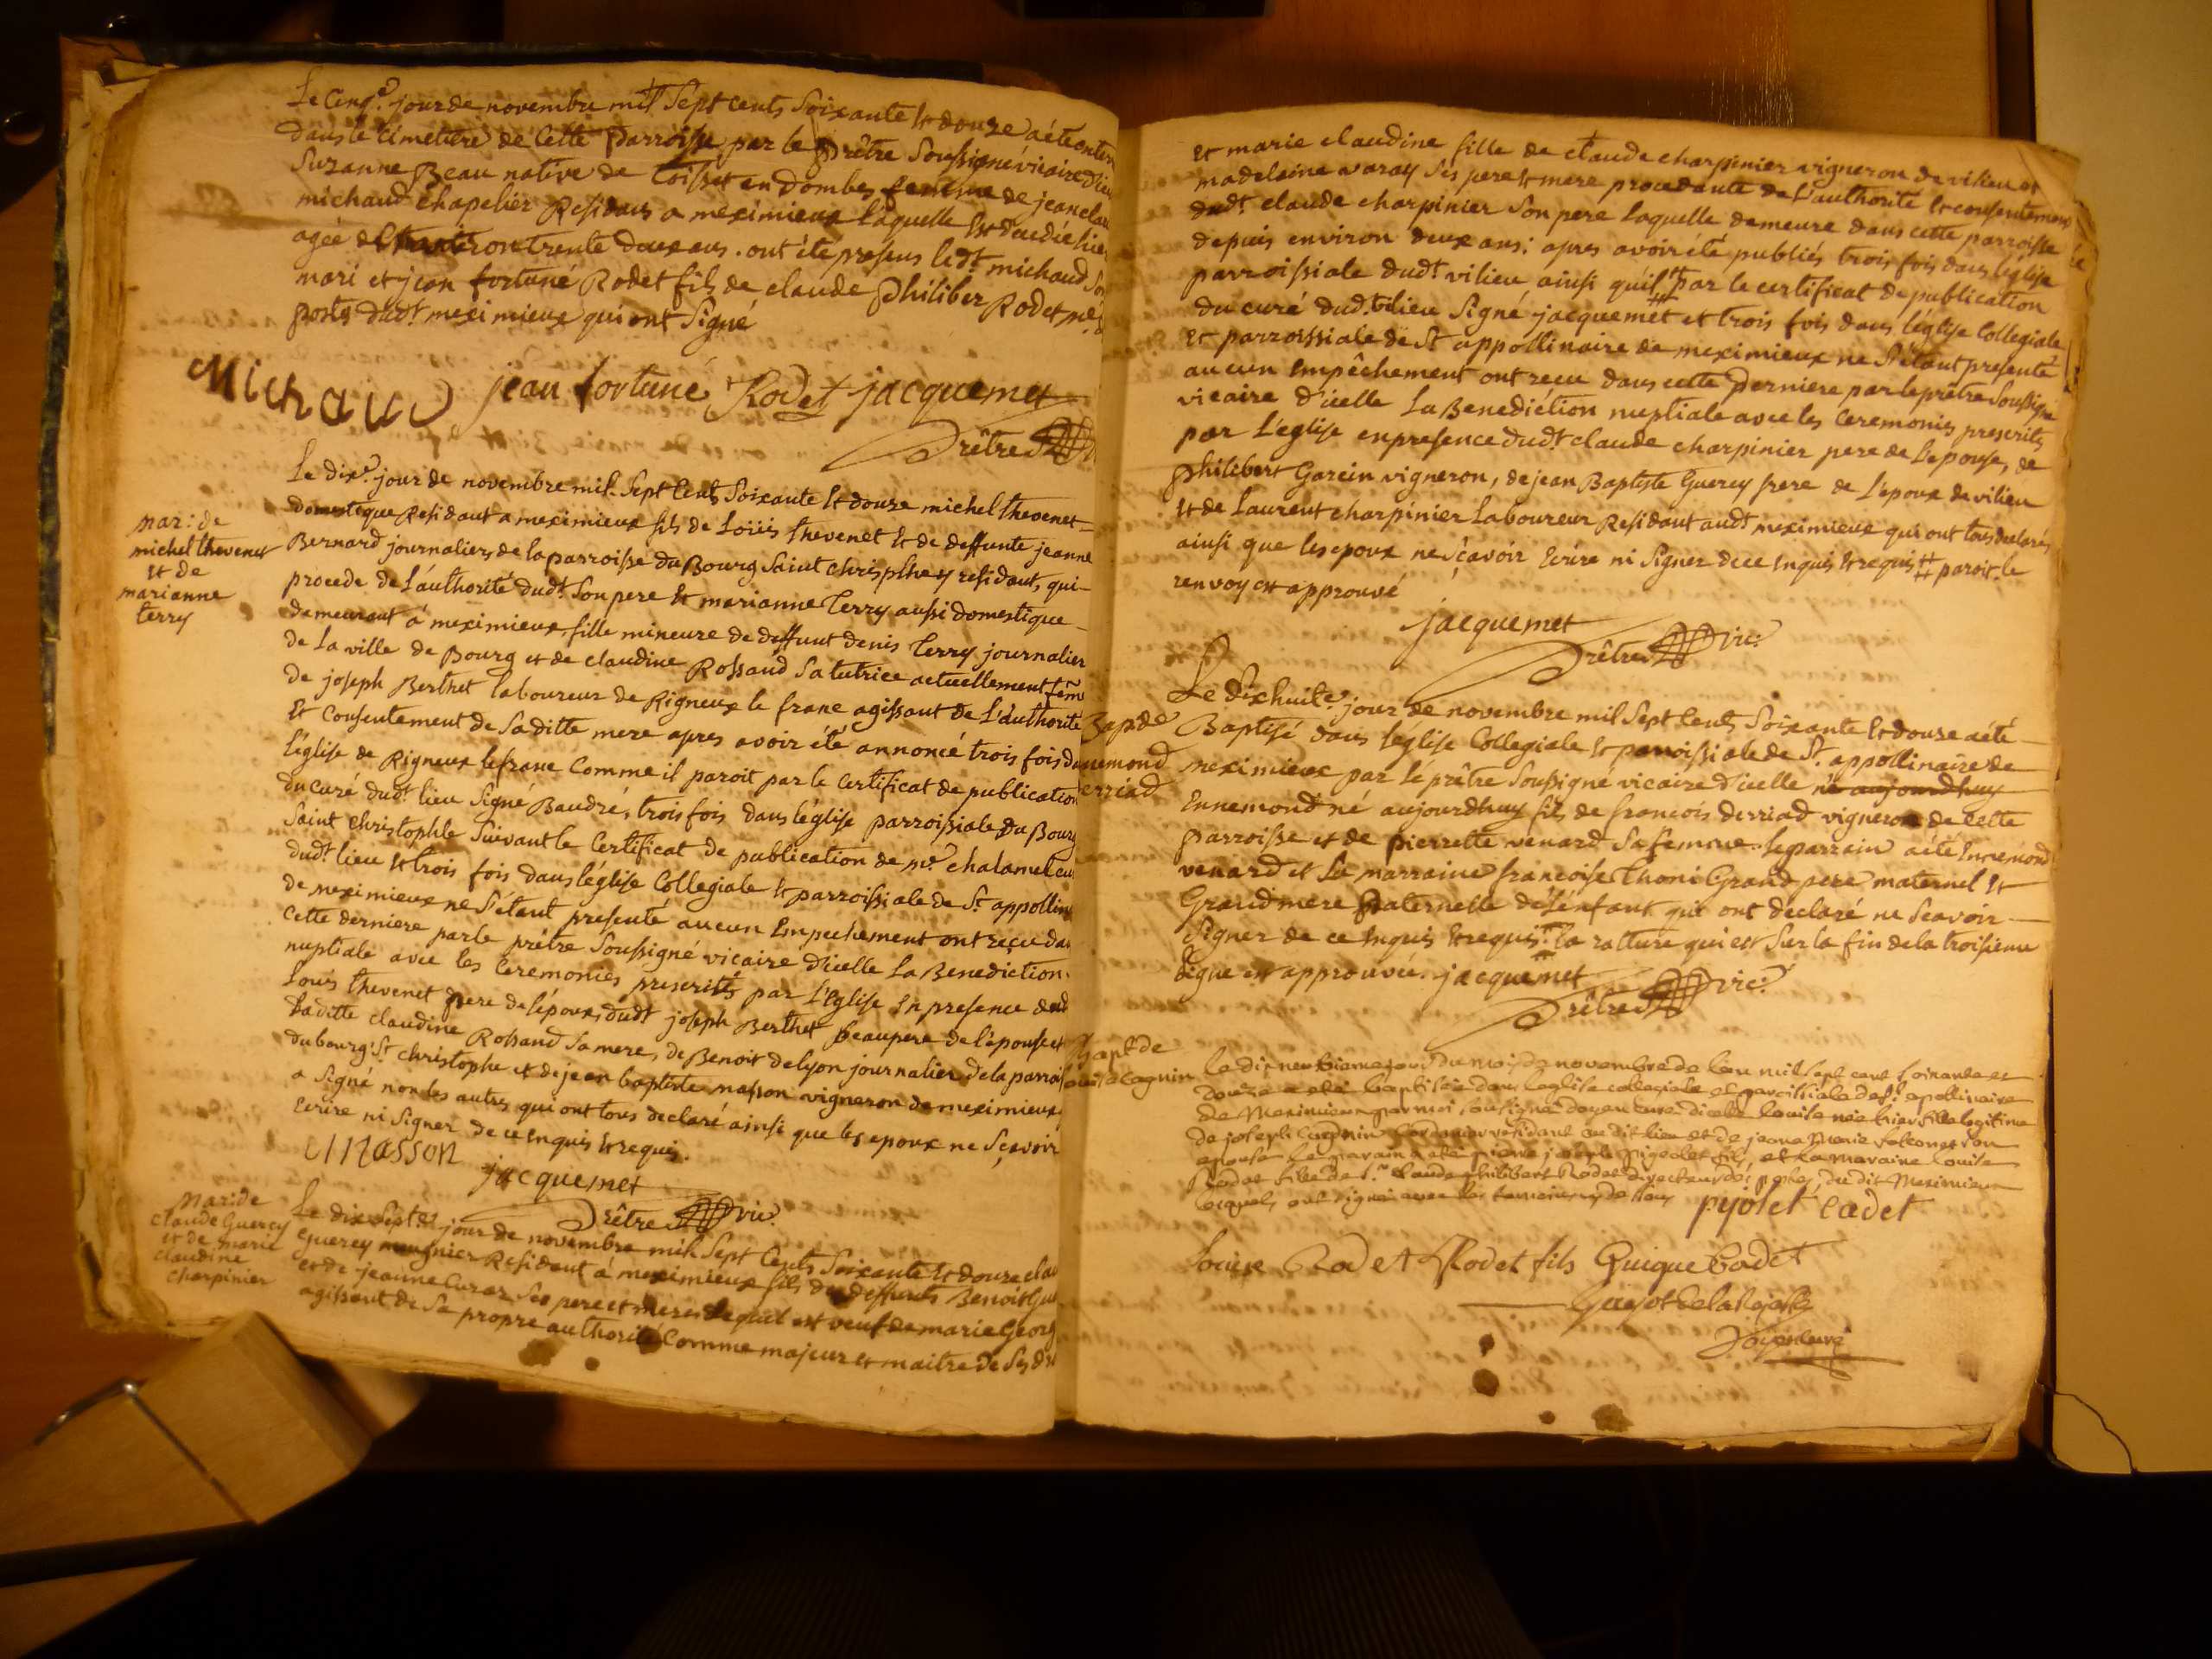 Le Cinq.e jour de novembre mil Sept Cents Soixante Et douze a été enter
dans le Cimetiere de Cette Parroisse par le Prêtre Soussigné vicaire d'ice
Suzanne Beau native de Toissei en Dombes femme de jean clau
michaud Chapelier Residans a meximieux laquelle Est decedée hier
agée d'Environ trente deux ans. ont été presens ledt michaud Son
mari et jean fortuné Rodet fils de claude Philiber Rodet me
postes dudt meximieux qui ont Signé
Michaud jean fortuné Rodet jacquemet
Prêtre
mari: de
michel thevenet
Et de
marianne
terry
Le dix.e jour de novembre mil Sept Cents Soixante Et douze michel thevenet
domestique Residant a meximieux fils de Loüis thevenet Et de deffunte jeanne
Bernard journaliers de la parroisse du Bourg Saint Chrispthey residants, qui
procede de L'authorité dudt Son pere Et marianne Terry aussi domestique
demeurant á meximieux, fille mineure de deffunt denis Terry journalier
de La ville de Bourg et de claudine Rossand Sa tutrice actuellement fem
de joseph Berthet laboureur de Rigneux le franc agissant de L'authorité
Et Consentement de Saditte mere apres avoir été annoncé trois fois da
l'église de Rigneux le franc Comme il paroit par le Certificat de publication
du Curé dudt lieu Signé Baudré, trois fois dans l'église parroissiale du Bourg
Saint Christophle Suivant le Certificat de publication de mr chalamel cu
dudt lieu Et trois fois dans l'église Collegiale Et parroissiale de St appollin
de meximieux ne S'étant presenté aucun Empechement ont reçu da
Cette derniere par le prêtre Soussigné vicaire d'icelle La Benediction
nuptiale avec les Ceremonies prescrités par L'Eglise En presence dud
Louis thevenet Pere de l'époux, dudt joseph Berthet Beaupere de l'épouse et
Laditte claudine Rossand Sa mere, de Benoit delyon journalier de la parrois
du bourg St christophe et de jean baptiste masson vigneron de meximieux
a Signé non les autres qui ont tous declaré ainsi que les epoux ne Sçavoir
Ecrire ni Signer de ce Enquis Et requis.
masson jacquemet
Prêtre vic.
Mar: de
Claude Guercy
et de marie
claudine
charpinier
Le dix Septe jour de novembre mil Sept Cents Soixante Et douze clau
Guerey meugnier Residant á meximieux fils de deffunts Benoit Gue
et de jeanne Curar Ses pere et mere lequel est veuf de marie Georg
agissant de Sa propre authorité Comme majeur et maitre de Ses dr
Et marie claudine fille de claude charpinier vigneron de vilieu et
madelaine varay Ses pere Et mere procedante de L'authorité Et consentement
dudt claude charpinier Son pere laquelle demeure dans cette parroisse
depuis environ deux ans: apres avoir été publiés trois fois dans l'église
parroissiale dudt vilieu ainsi qu'il # par le certificat de publication
du curé dudt vilieu Signé jacquemet et trois fois dans l'église Collegiale
Et parroissiale de St appollinaire de meximieux ne S'étant presenté
aucun Empêchement ont recu dans cette derniere par le prêtre Soussigné
vicaire d'icelle La Benediction nuptiale avec les Ceremonies prescrités
par L'eglise en presence dudt claude charpinier pere de l'epouse, de
Philibert Garcin vigneron, de jean Baptiste Guerey frere de L'epoux de vilieu
Et de Laurent charpinier Laboureur Residant audt meximieux qui ont tous declarés
ainsi que les epoux ne Sçavoir Ecrire ni Signer de ce Enquis Et requis # paroit. le
renvoy est approuvé
jacquemet
Prêtre vic.
Bap de
nemond
erriad
Le dix huite. jour de novembre mil Sept Cents Soixante Et douze a été
Baptisé dans l'église Collegiale Et parroissiale de St. appollinaire de
meximieux par le prêtre Soussigné vicaire d'icelle né aujourdhuy
Ennemond né aujourdhuy fils de francois derriad vigneron de Cette
parroisse et de pierrette venard Sa femme. Le parrain a été Ennemond
venard et La marraine francoise Thoni Grand pere maternel Et
Grandmere Paternelle de l'enfant qui ont déclaré ne Scavoir
Signer de ce Enquis Et requis. la ratture qui est Sur la fin de la troisieme
ligne est approuvée. jacquemet
Prêtre vic.
Bapt de
Louise Cognin
le dix neuvieme jour du moi de novembre de lan mil sept cent soixante et
douze a eté baptisée dans leglise collegiale et paroissiale de St apollinaire
de Meximieux par moi sousigné doyen curé dicelle louise née hier fille legitime
de joseph Cognin residant au dit lieu et de jeane Marie
epouse le parain a eté pierre joseph pigeolet fils, et la maraine louise
Rodet fille de Sr Claude philibert Rodet directeur des postes du dit Meximieux
lesquels ont signé avec les temoins
pijolet Cadet
Louise Rodet Rodet fils Guigue Cadet
Doyen curé